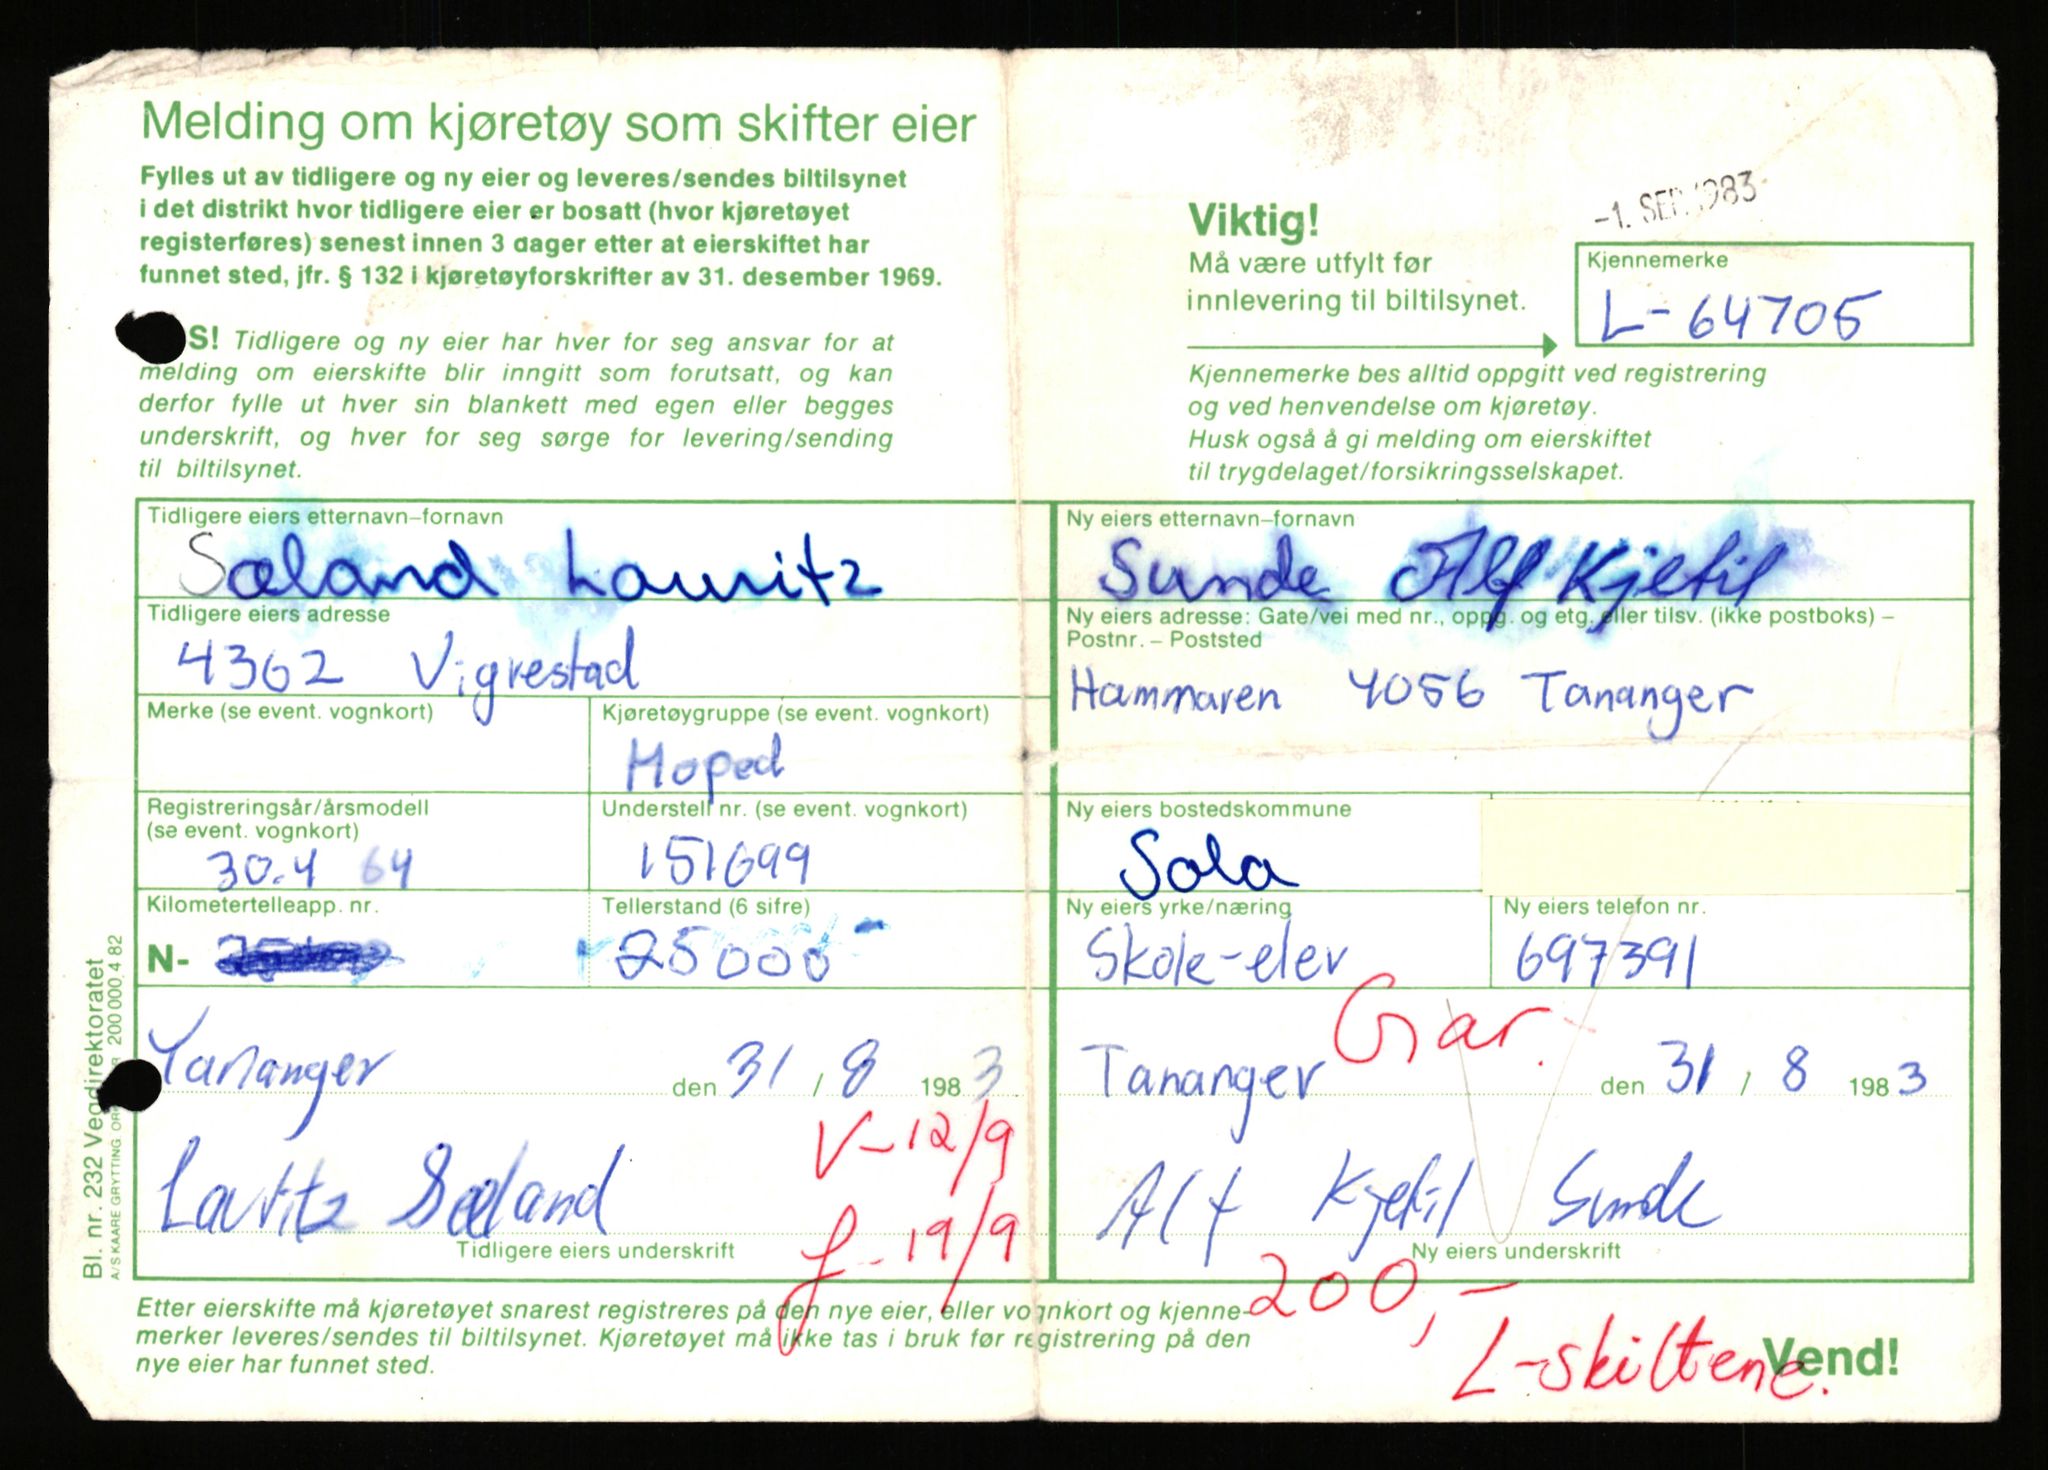 Melding om kjøretøy som skifter eier
Fylles ut av tidligere og ny eier og leveres/sendes biltilsynet
i det distrikt hvor tidligere eier er bosatt (hvor kjøretøyet
registerføres) senest innen 3 dager etter at eierskiftet har
funnet sted, jfr. § 132 i kjøretøyforskrifter av 31. desember 1969.
S! Tidligere og ny eier har hver for seg ansvar for at
melding om eierskifte blir inngitt som forutsatt, og kan
derfor fylle ut hver sin blankett med egen eller begges
underskrift, og hver for seg sørge for levering/sending
til biltilsynet.
-1. SEP. 1983
Viktig!
Må være utfylt før
innlevering til biltilsynet.
Kjennemerke
L-64705
Kjennemerke bes alltid oppgitt ved registrering
og ved henvendelse om kjøretøy.
Husk også å gi melding om eierskiftet
til trygdelaget/forsikringsselskapet.
Tidligere eiers etternavn–fornavn
Sæland Lauritz
Tidligere eiers adresse
4362 Vigrestad
Merke (se event. vognkort)
Kjøretøygruppe (se event. vognkort)
Moped
Registreringsår/årsmodell
(se event. vognkort)
30.4 64
Understell nr. (se event. vognkort)
151699
Kilometertelleapp. nr.
N-
Tellerstand (6 sifre)
25000
Tananger den 31/8 1983
V-12/9
Lauritz Sæland
f-19/9
Tidligere eiers underskrift
Ny eiers etternavn–fornavn
Sunde Alf Kjetil
Ny eiers adresse: Gate/vei med nr., oppg. og etg. eller tilsv. (ikke postboks) –
Postnr. – Poststed
Hammaren 4056 Tananger
Ny eiers bostedskommune
Sola
Ny eiers yrke/næring
Skole-elev
Ny eiers telefon nr.
697391
Gar.
Tananger den 31/8 1983
Alf Kjetil Sunde
Ny eiers underskrift
200,-
L-skiltene.
Etter eierskifte må kjøretøyet snarest registreres på den nye eier, eller vognkort og kjenne-
merker leveres/sendes til biltilsynet. Kjøretøyet må ikke tas i bruk før registrering på den
nye eier har funnet sted.
Vend!
Bl. nr. 232 Vegdirektoratet
A/S KAARE GRYTTING 200 000. 4 82